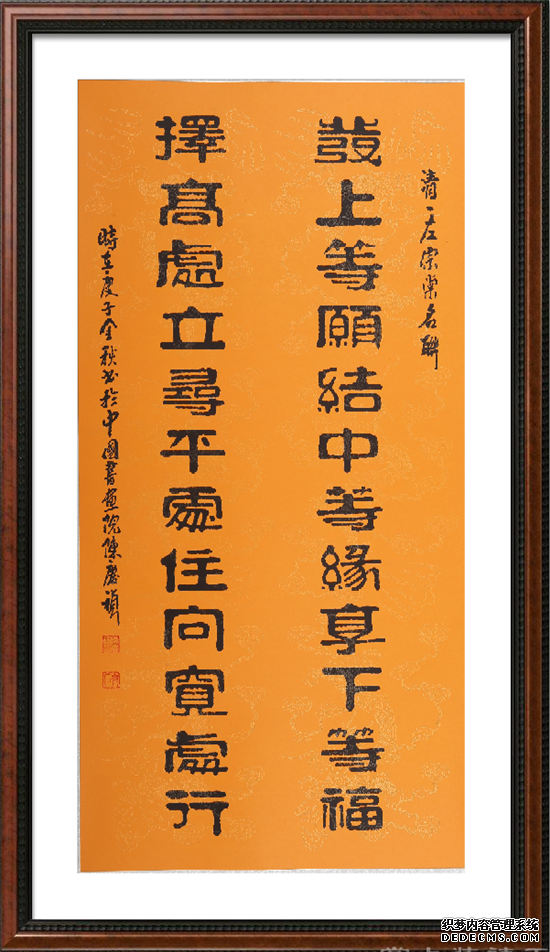 清、左宗棠名聯
發上等願結中等緣享下等福
擇髙處立尋平處住向寬處行
時在庚子金秋书於中國書畫院陳慶禎
织梦内容管理系统
DEDECMS.COM